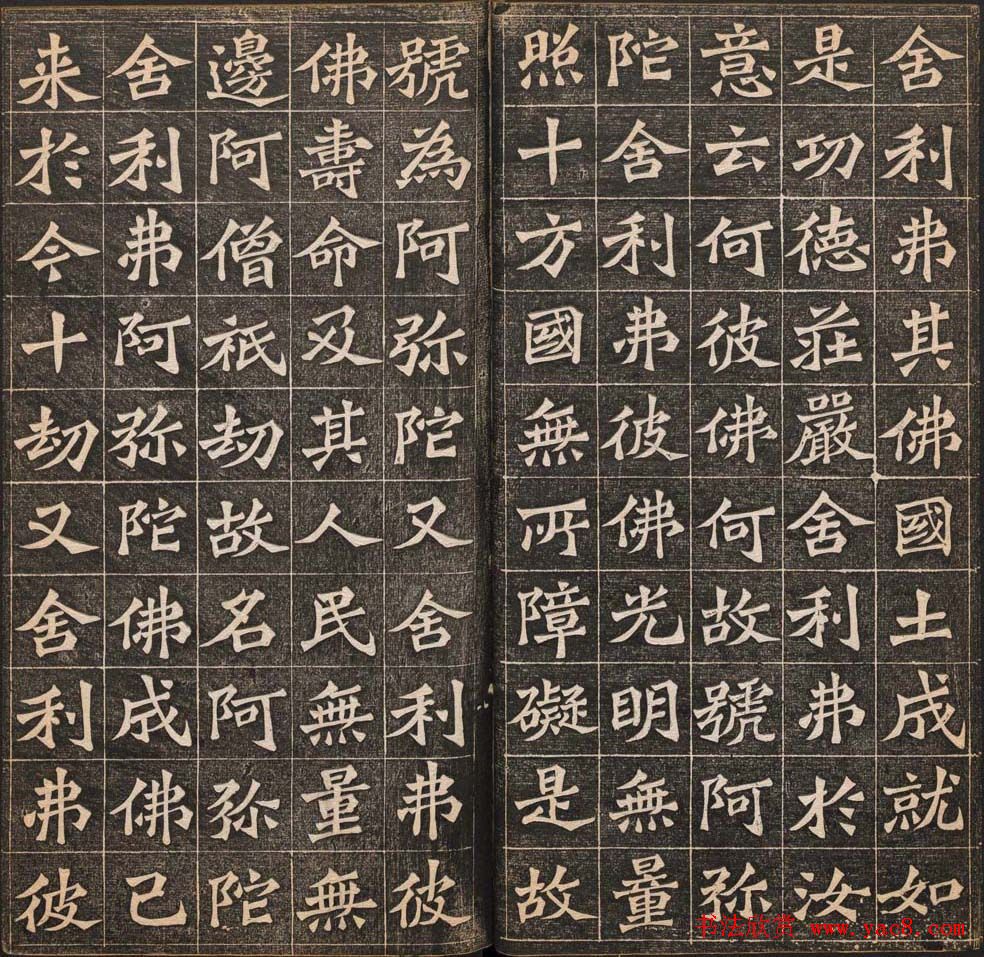 舍利弗其佛國土成就如
是功德莊嚴舍利弗於汝
意云何彼佛何故號阿弥
陀舍利弗彼佛光明無量
照十方國無所障礙是故
號為阿弥陀又舍利弗彼
佛壽命及其人民無量無
邊阿僧祇劫故名阿弥陀
舍利弗阿弥陀佛成佛已
来於今十劫又舍利弗彼
书法欣赏 www.yac8.com